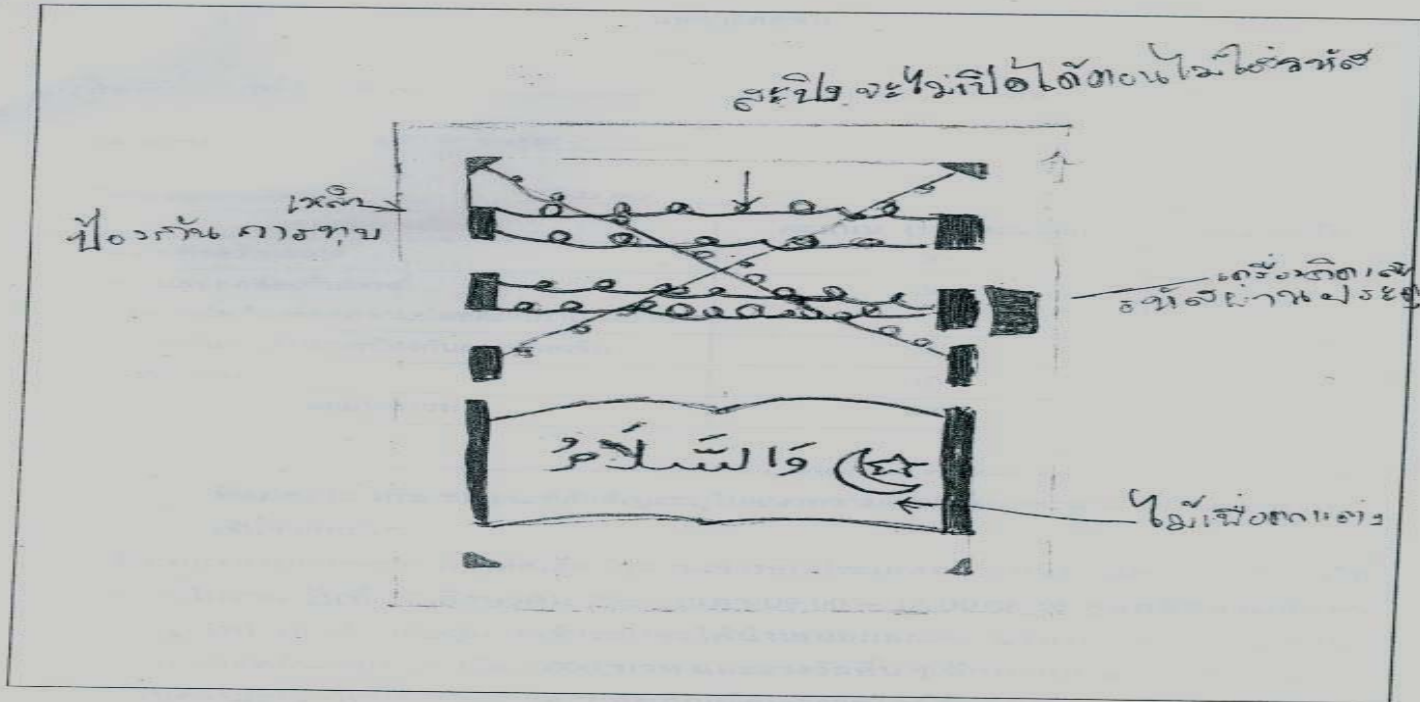 สะปิง จะไม่เปิดได้ตอนไม่ใส่รหัส
เหล็ก
ป้องกัน การทุบ
เครื่องติด
รหัสผ่าน ประตู
وَالسَّلَامُ
ไม้เพื่อตกแต่ง